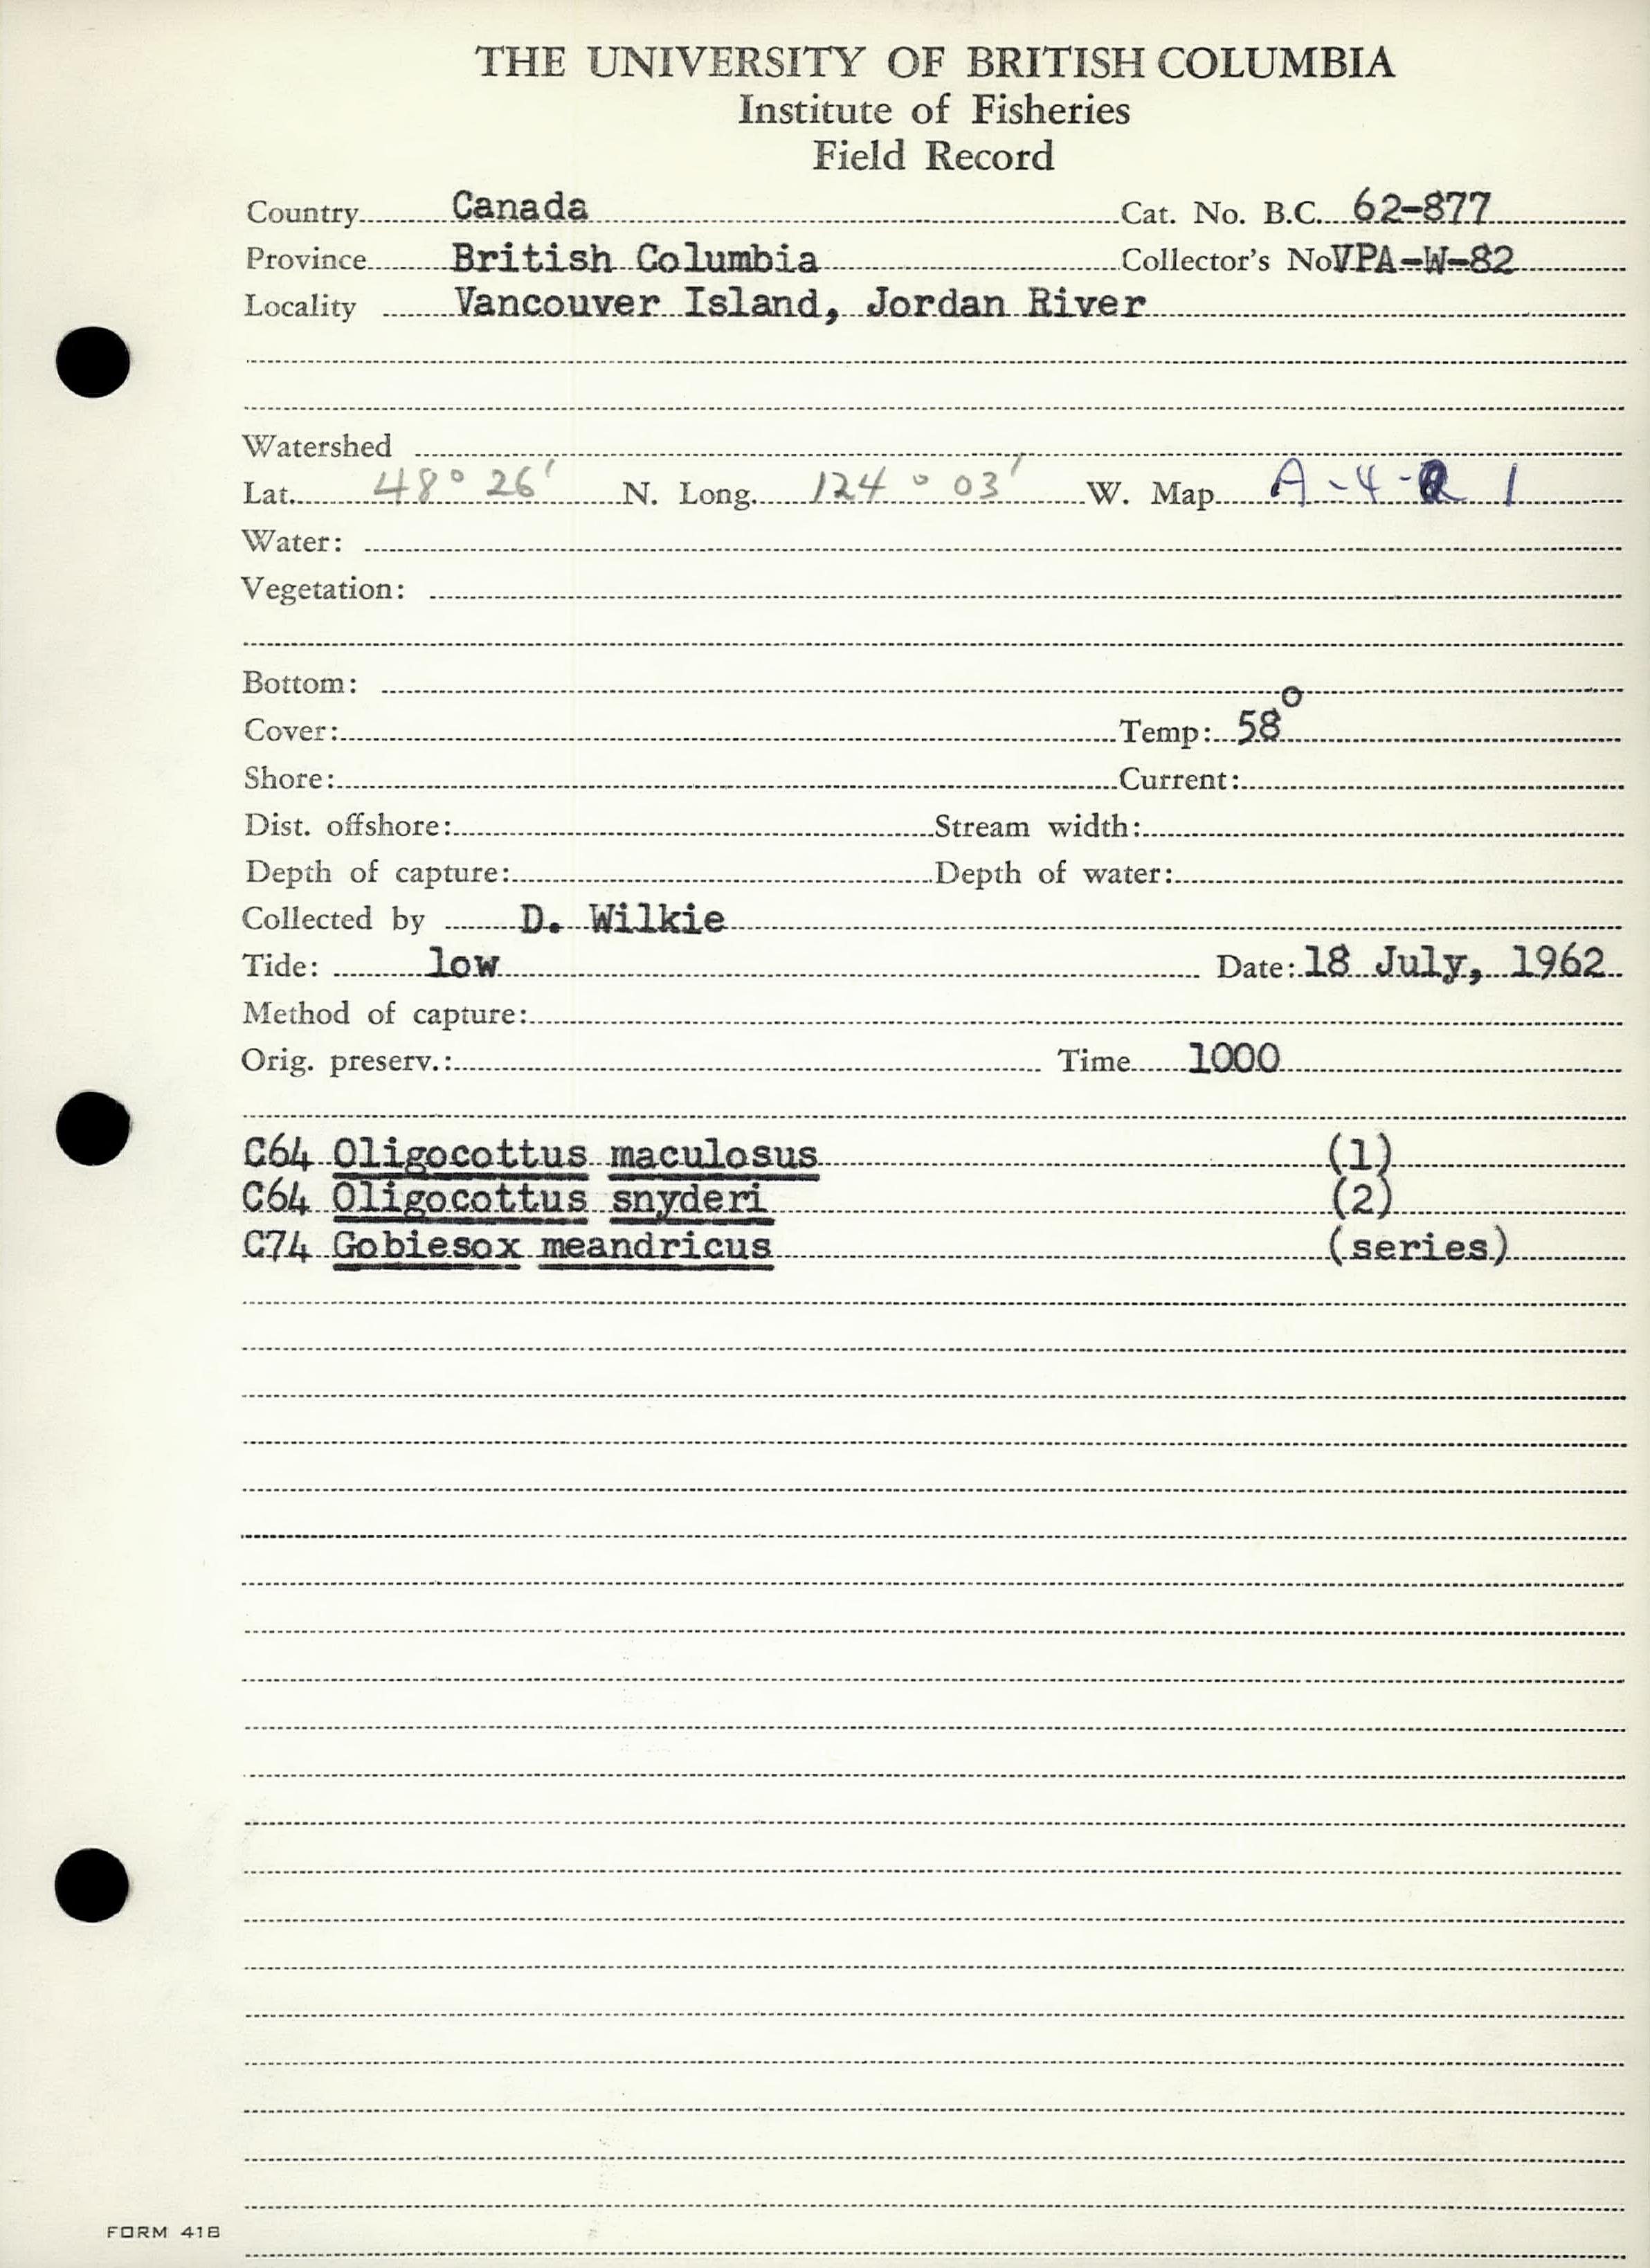 THE UNIVERSITY OF BRITISH COLUMBIA
Institute of Fisheries
Field Record
Country Canada Cat. No. B.C. 62-877
Province British Columbia Collector's No VPA-W-82
Locality Vancouver Island, Jordan River
Watershed
Lat. 48° 26' N. Long. 124° 03' W. Map A-4- 1
Water:
Vegetation:
Bottom:
Cover: Temp: 58°
Shore: Current:
Dist. offshore: Stream width:
Depth of capture: Depth of water:
Collected by D. Wilkie
Tide: low Date: 18 July, 1962
Method of capture:
Orig. preserv.: Time 1000
C64 Oligocottus maculosus (1)
C64 Oligocottus snyderi (2)
C74 Gobiesox meandricus (series)
FORM 41B